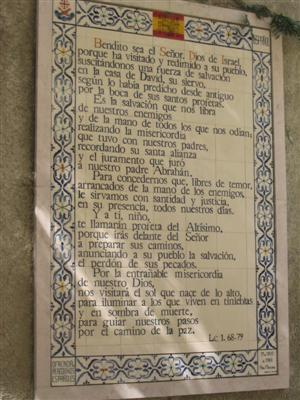 Bendito sea el Señor, Dios de Israel,
porque ha visitado y redimido a su pueblo,
suscitándonos una fuerza de salvación
en la casa de David, su siervo,
según lo había predicho desde antiguo
por la boca de sus santos profetas.
Es la salvación que nos libra
de nuestros enemigos
y de la mano de todos los que nos odian;
realizando la misericordia
que tuvo con nuestros padres,
recordando su santa alianza
y el juramento que juró
a nuestro padre Abrahán.
Para concedernos que, libres de temor,
arrancados de la mano de los enemigos,
le sirvamos con santidad y justicia,
en su presencia, todos nuestros días.
Y a ti, niño,
te llamarán profeta del Altísimo,
porque irás delante del Señor
a preparar sus caminos,
anunciando a su pueblo la salvación,
el perdón de sus pecados.
Por la entrañable misericordia
de nuestro Dios,
nos visitará el sol que nace de lo alto,
para iluminar a los que viven en tinieblas
y en sombra de muerte,
para guiar nuestros pasos
por el camino de la paz.
Lc 1. 68-79
OFRENDA
PEREGRINOS
ESPAÑOLES